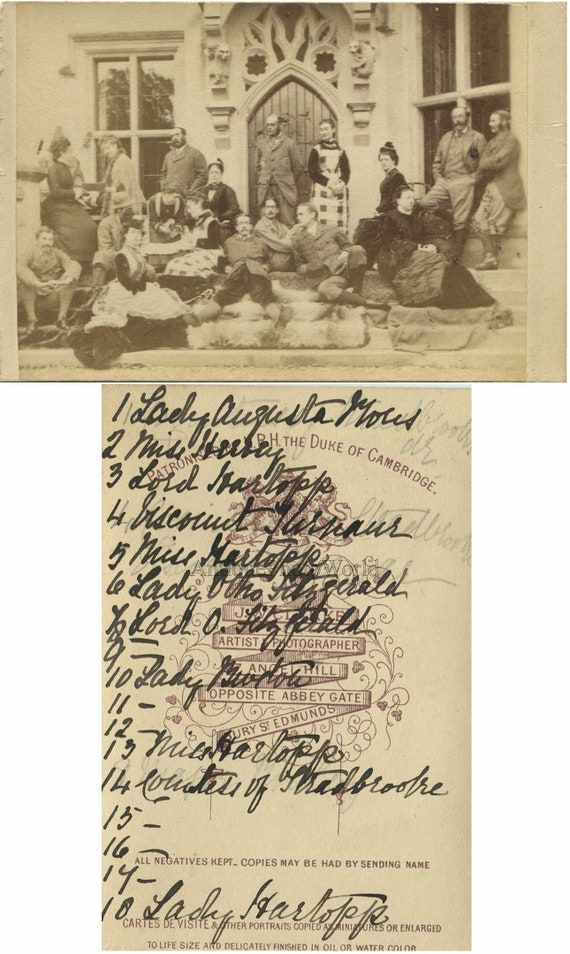 1 Lady Augusta
2 Miss Hervey
PATRONISED H.R.H. THE DUKE OF CAMBRIDGE.
3 Lord Hartopp
4 Viscount
5 Miss Hartopp
6 Lady Otho Fitzgerald
Lord O. Fitzgerald
ARTIST & PHOTOGRAPHER
9 –
ANGEL HILL
10 Lady
OPPOSITE ABBEY GATE
11 –
BURY ST EDMUNDS
12 –
13 Miss Hartopp
14 Countess of Stradbrooke
15 –
16 –
ALL NEGATIVES KEPT_ COPIES MAY BE HAD BY SENDING NAME
17 –
18 Lady Hartopp
CARTES DE VISITE & OTHER PORTRAITS COPIED AS MINIATURES OR ENLARGED
TO LIFE SIZE AND DELICATELY FINISHED IN OIL OR WATER COLOR